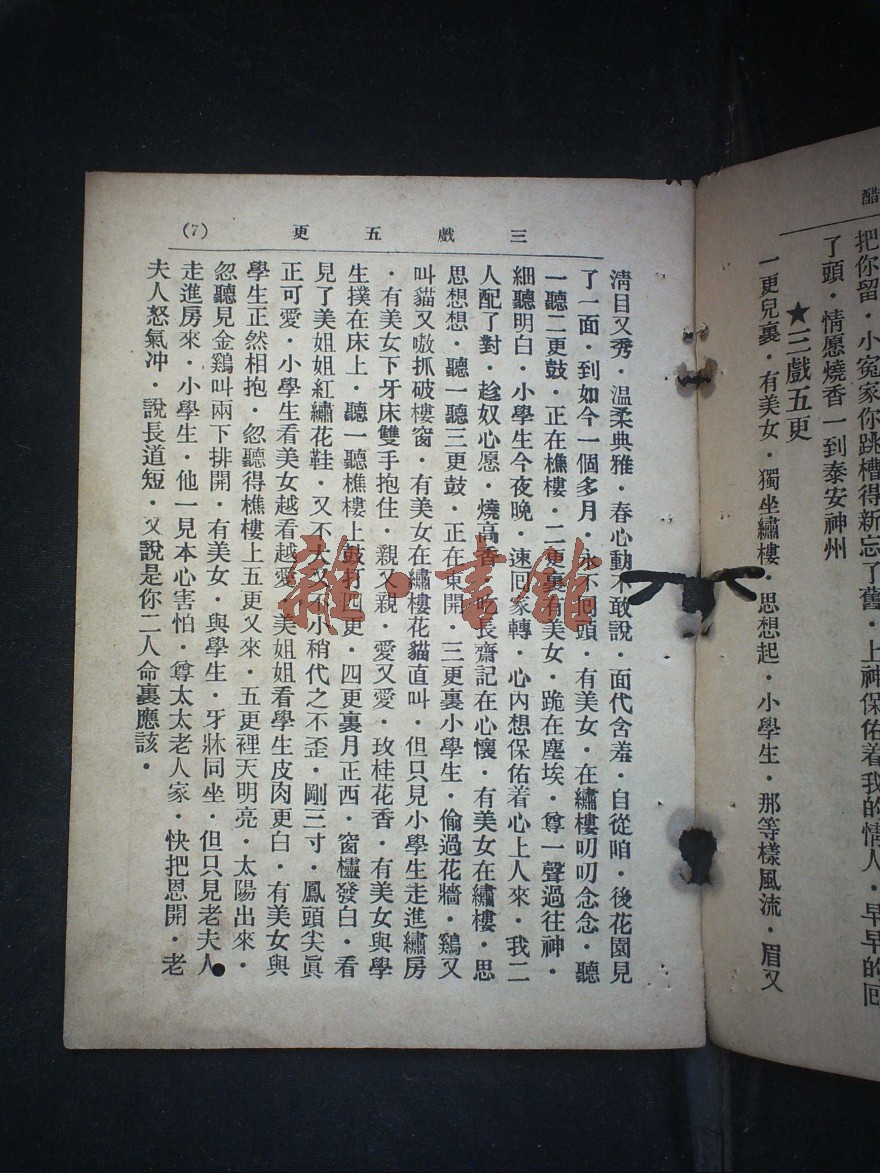 醋
把你留·小冤家你跳槽得新忘了舊·上神保佑着我的情人·早早的回
了頭·情愿燒香一到泰安神州
★三戲五更
一更兒裏·有美女·獨坐繡樓·思想起·小學生·那等樣風流·眉又
三戲五更 (7)
淸目又秀·溫柔典雅·春心動不敢說·面代含羞·自從咱·後花園見
了一面·到如今一個多月·永不回頭·有美女·在繡樓叨叨念念·聽
一聽二更鼓·正在樵樓·二更裏有美女·跪在塵埃·尊一聲過往神·
細聽明白·小學生今夜晚·速回家轉·心內想保佑着心上人來·我二
人配了對·趁奴心愿·燒高香·吃長齋記在心懷·有美女在繡樓·思
思想想·聽一聽三更鼓·正在東開·三更裏小學生·偷過花牆·鷄又
叫貓又嗷抓破樓窗·有美女在繡樓花貓直叫·但只見小學生走進繡房
·有美女下牙床雙手抱住·親又親·愛又愛·玫桂花香·有美女與學
生撲在床上·聽一聽樵樓上鼓打四更·四更裏月正西·窗櫺發白·看
見了美姐姐紅繡花鞋·又不大又不小稍代之不歪·剛三寸·鳳頭尖眞
正可愛·小學生看美女越看越愛·美姐姐看學生皮肉更白·有美女與
學生正然相抱·忽聽得樵樓上五更又來·五更裡天明亮·太陽出來·
忽聽見金鷄叫兩下排開·有美女·與學生·牙牀同坐·但只見老夫人
走進房來·小學生·他一見本心害怕·尊太太老人家·快把恩開·老
夫人怒氣冲·說長道短·又說是你二人命裏應該·
雜·書館